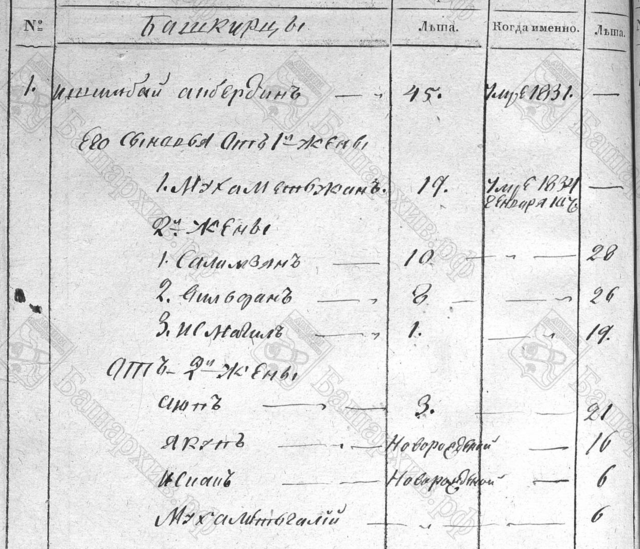 № Башкирцы Лѣта. Когда именно. Лѣта.
1. ишимбай акбердинъ — 45. Умре 1831. —
Его сыновья Отъ 1й жены
1. Мухаметьжанъ. 19. Умре 1831 —
Генваря
2й жены
1. Салимзянъ — 10. — — 28
— 8 — — 26
3. Исмагилъ — 1. — 19.
отъ 2й жены
аюпъ — — 3. — — 21
якупъ — — Новорожденой — 16
— — Новорожденой — 6
Мухаметьгалій — — — 6
Башархив.рф